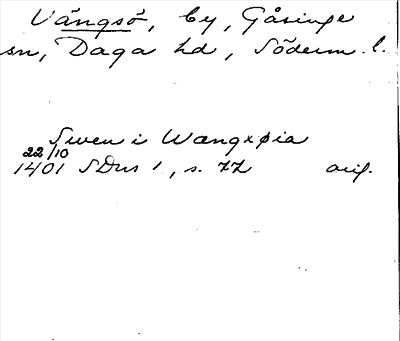 Vängsö, by, Gåsinge
sn, Daga hd, Söderm. l.
Swen i Wangxøia
22/10
1401 SDns 1, s. 77 orig.